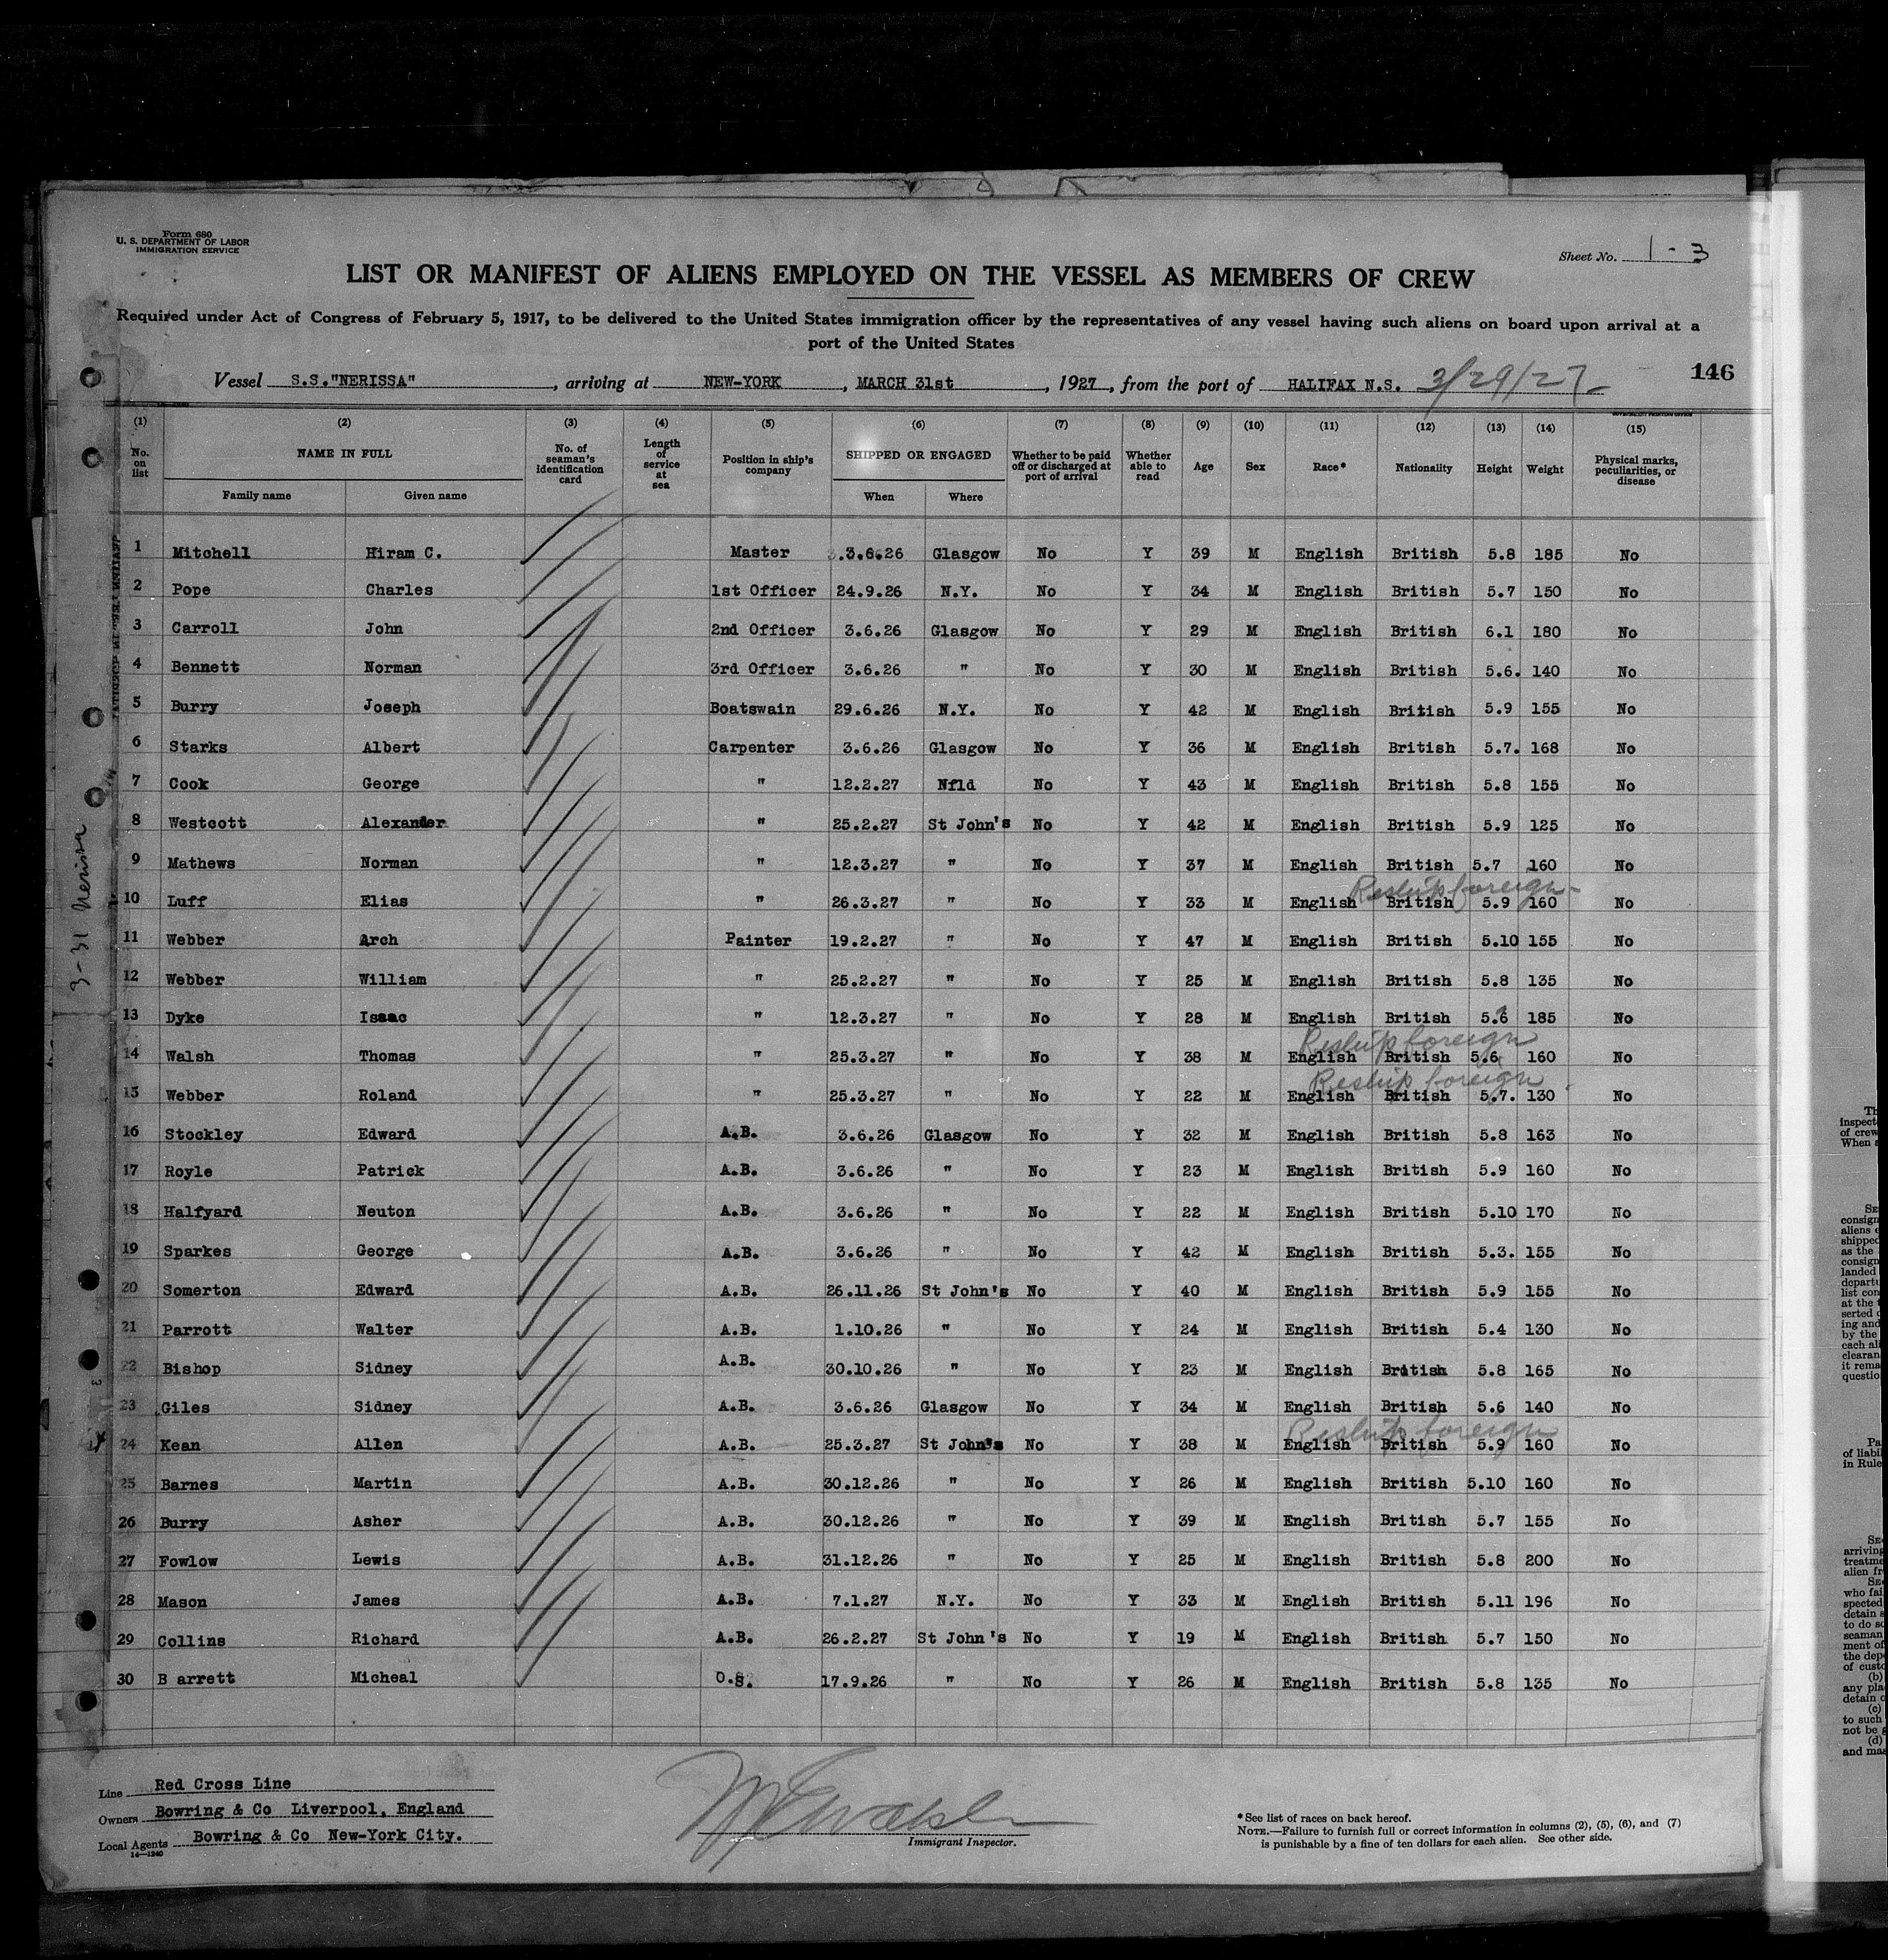 Form 680
U. S. DEPARTMENT OF LABOR
IMMIGRATION SERVICE
Sheet No. 1 - 3
LIST OR MANIFEST OF ALIENS EMPLOYED ON THE VESSEL AS MEMBERS OF CREW
Required under Act of Congress of February 5, 1917, to be delivered to the United States immigration officer by the representatives of any vessel having such aliens on board upon arrival at a
port of the United States
Vessel S.S."NERISSA", arriving at NEW-YORK, MARCH 31st, 1927, from the port of HALIFAX N.S. 3/29/27
146
(1) (2) (3) (4) (5) (6) (7) (8) (9) (10) (11) (12) (13) (14) (15)
No. on list NAME IN FULL Family name Given name No. of seaman's identification card Length of service at sea Position in ship's company SHIPPED OR ENGAGED When Where Whether to be paid off or discharged at port of arrival Whether able to read Age Sex Race* Nationality Height Weight Physical marks, peculiarities, or disease
1 Mitchell Hiram C. Master 3.6.26 Glasgow No Y 39 M English British 5.8 185 No
2 Pope Charles 1st Officer 24.9.26 N.Y. No Y 34 M English British 5.7 150 No
3 Carroll John 2nd Officer 3.6.26 Glasgow No Y 29 M English British 6.1 180 No
4 Bennett Norman 3rd Officer 3.6.26 " No Y 30 M English British 5.6. 140 No
5 Burry Joseph Boatswain 29.6.26 N.Y. No Y 42 M English British 5.9 155 No
6 Starks Albert Carpenter 3.6.26 Glasgow No Y 36 M English British 5.7. 168 No
7 Cook George " 12.2.27 Nfld No Y 43 M English British 5.8 155 No
8 Westcott Alexander " 25.2.27 St John's No Y 42 M English British 5.9 125 No
9 Mathews Norman " 12.3.27 " No Y 37 M English British 5.7 160 No
Reship foreign -
10 Luff Elias " 26.3.27 " No Y 33 M English British 5.9 160 No
11 Webber Arch Painter 19.2.27 " No Y 47 M English British 5.10 155 No
12 Webber William " 25.2.27 " No Y 25 M English British 5.8 135 No
13 Dyke Isaac " 12.3.27 " No Y 28 M English British 5.6 185 No
Reship foreign
14 Walsh Thomas " 25.3.27 " No Y 38 M English British 5.6 160 No
Reship foreign
15 Webber Roland " 25.3.27 " No Y 22 M English British 5.7. 130 No
16 Stockley Edward A.B. 3.6.26 Glasgow No Y 32 M English British 5.8 163 No
17 Royle Patrick A.B. 3.6.26 " No Y 23 M English British 5.9 160 No
18 Halfyard Neuton A.B. 3.6.26 " No Y 22 M English British 5.10 170 No
19 Sparkes George A.B. 3.6.26 " No Y 42 M English British 5.3. 155 No
20 Somerton Edward A.B. 26.11.26 St John's No Y 40 M English British 5.9 155 No
21 Parrott Walter A.B. 1.10.26 " No Y 24 M English British 5.4 130 No
22 Bishop Sidney A.B. 30.10.26 " No Y 23 M English British 5.8 165 No
23 Giles Sidney A.B. 3.6.26 Glasgow No Y 34 M English British 5.6 140 No
Reship foreign
24 Kean Allen A.B. 25.3.27 St John's No Y 38 M English British 5.9 160 No
25 Barnes Martin A.B. 30.12.26 " No Y 26 M English British 5.10 160 No
26 Burry Asher A.B. 30.12.26 " No Y 39 M English British 5.7 155 No
27 Fowlow Lewis A.B. 31.12.26 " No Y 25 M English British 5.8 200 No
28 Mason James A.B. 7.1.27 N.Y. No Y 33 M English British 5.11 196 No
29 Collins Richard A.B. 26.2.27 St John 's No Y 19 M English British 5.7 150 No
30 B arrett Micheal O.S. 17.9.26 " No Y 26 M English British 5.8 135 No
3-31 Nerissa
Line Red Cross Line
Owners Bowring & Co Liverpool, England
Local Agents Bowring & Co New-York City.
14—1240
Immigrant Inspector.
*See list of races on back hereof.
NOTE.—Failure to furnish full or correct information in columns (2), (5), (6), and (7)
is punishable by a fine of ten dollars for each alien. See other side.